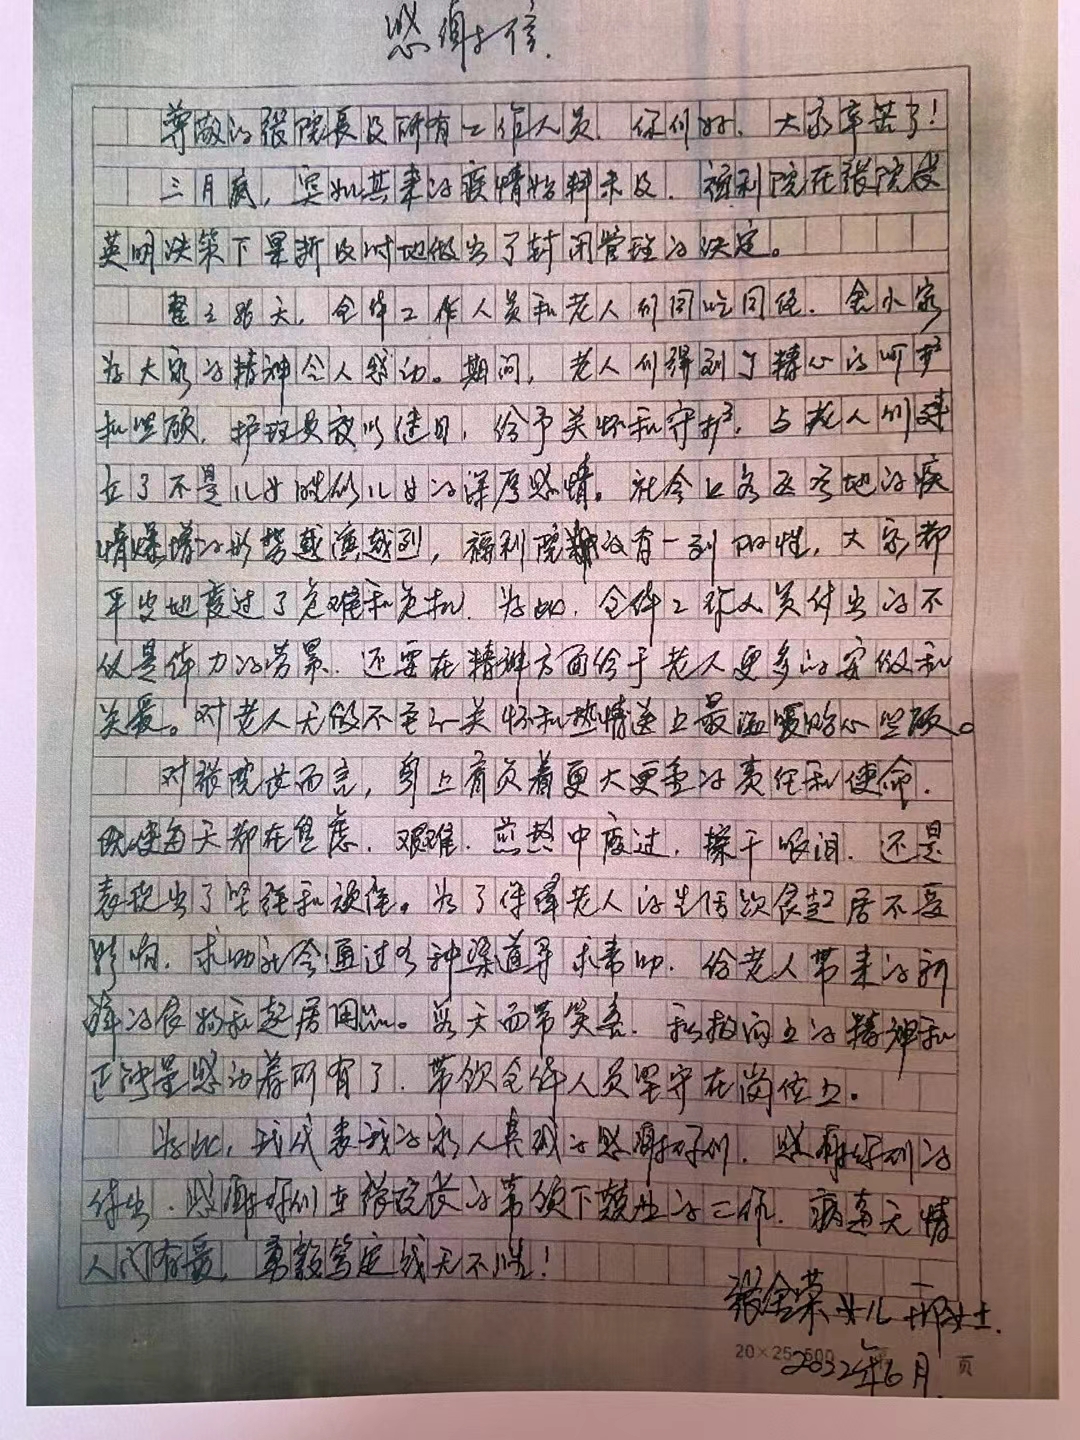 感谢信.
尊敬的张院長及所有工作人员、你们好、大家辛苦了!
三月底,突如其来的疫情始料未及.福利院在张院长
英明决策下果断及时地做出了封闭管理的决定。
整3 天,全体工作人员和老人们同吃同住.舍小家
为大家的精神令人感动。期间,老人们得到了精心的呵护
和照顾.护理员夜以继日,给予关怀和守护,与老人们建
立了不是儿女胜似儿女的深厚感情。社会上各区各地的疫
情爆增的形势越演越烈,福利院 没有一列阳性,大家都
平安地度过了危难和危机.为此.全体工作人员付出的不
仅是体力的劳累.还要在精神方面给于老人更多的安慰和
关爱。对老人无微不至的关怀和热情送上最温暖的心照顾。
对张院长而言,身上肩负着更大更重的责任和使命.
既使每天都在焦虑、艰难、煎熬中度过,擦干眼泪.还是
表现出了坚强和顽强。为了保障老人的生活饮食起居不受
影响.求助社会通过各种渠道寻求帮助.给老人带来的新
鲜的食物和起居用品。每天面带笑容.积极向上的精神和
正能量感动着所有了.带领全体人员坚守在岗位上。
为此,我代表我的家人真诚的感谢你们.感谢你们的
付出.感谢你们在张院长的带领下 的工作.病毒无情
人间有爱, 笃定战无不胜!
张金荣女儿 女士.
20×25=500 页
2022年6月.